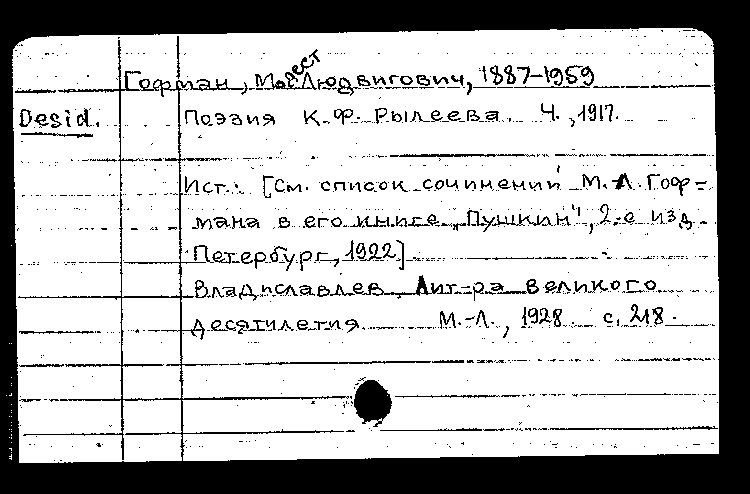 Гофман, Модест Людвигович, 1887-1959
Desid. Поэзия К.Ф. Рылеева. Ч., 1917.
Ист.: [См. список сочинений М.Л. Гоф-
мана в его книге „Пушкин", 2-е изд.
Петербург, 1922]
Владиславлев, Лит-ра великого
десятилетия М.-Л., 1928 с. 218.